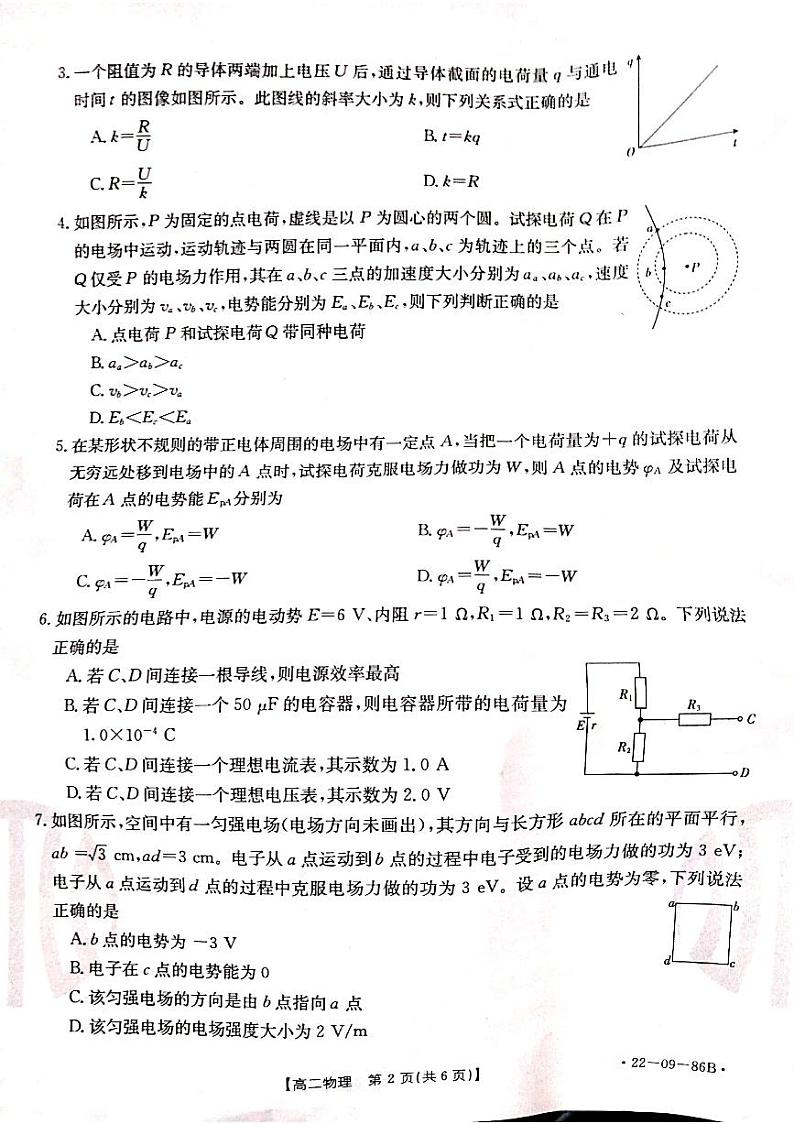 3. 一个阻值为 R 的导体两端加上电压 U 后,通过导体截面的电荷量 q 与通电
时间 t 的图像如图所示。此图线的斜率大小为 k,则下列关系式正确的是
A. k=R/U
B. t=kq
C. R=U/k
D. k=R
q
O
t
4. 如图所示,P 为固定的点电荷,虚线是以 P 为圆心的两个圆。试探电荷 Q 在 P
的电场中运动,运动轨迹与两圆在同一平面内,a、b、c 为轨迹上的三个点。若
Q 仅受 P 的电场力作用,其在 a、b、c 三点的加速度大小分别为 aₐ、a_b、a_c,速度
大小分别为 vₐ、v_b、v_c,电势能分别为 Eₐ、E_b、E_c,则下列判断正确的是
A. 点电荷 P 和试探电荷 Q 带同种电荷
B. aₐ>a_b>a_c
C. v_b>v_c>vₐ
D. E_b<E_c<Eₐ
a
b
P
c
5. 在某形状不规则的带正电体周围的电场中有一定点 A,当把一个电荷量为+q 的试探电荷从
无穷远处移到电场中的 A 点时,试探电荷克服电场力做功为 W,则 A 点的电势 φ_A 及试探电
荷在 A 点的电势能 E_pA 分别为
A. φ_A=W/q,E_pA=W
B. φ_A=-W/q,E_pA=W
C. φ_A=-W/q,E_pA=-W
D. φ_A=W/q,E_pA=-W
6. 如图所示的电路中,电源的电动势 E=6 V、内阻 r=1 Ω,R₁=1 Ω,R₂=R₃=2 Ω。下列说法
正确的是
A. 若 C、D 间连接一根导线,则电源效率最高
B. 若 C、D 间连接一个 50 μF 的电容器,则电容器所带的电荷量为
1.0×10⁻⁴ C
C. 若 C、D 间连接一个理想电流表,其示数为 1.0 A
D. 若 C、D 间连接一个理想电压表,其示数为 2.0 V
R₁
R₃
C
E r
R₂
D
7. 如图所示,空间中有一匀强电场(电场方向未画出),其方向与长方形 abcd 所在的平面平行,
ab=√3 cm,ad=3 cm。电子从 a 点运动到 b 点的过程中电子受到的电场力做的功为 3 eV;
电子从 a 点运动到 d 点的过程中克服电场力做的功为 3 eV。设 a 点的电势为零,下列说法
正确的是
A. b 点的电势为 -3 V
B. 电子在 c 点的电势能为 0
C. 该匀强电场的方向是由 b 点指向 a 点
D. 该匀强电场的电场强度大小为 2 V/m
a
b
d
c
【高二物理 第 2 页(共 6 页)】
·22-09-86B·